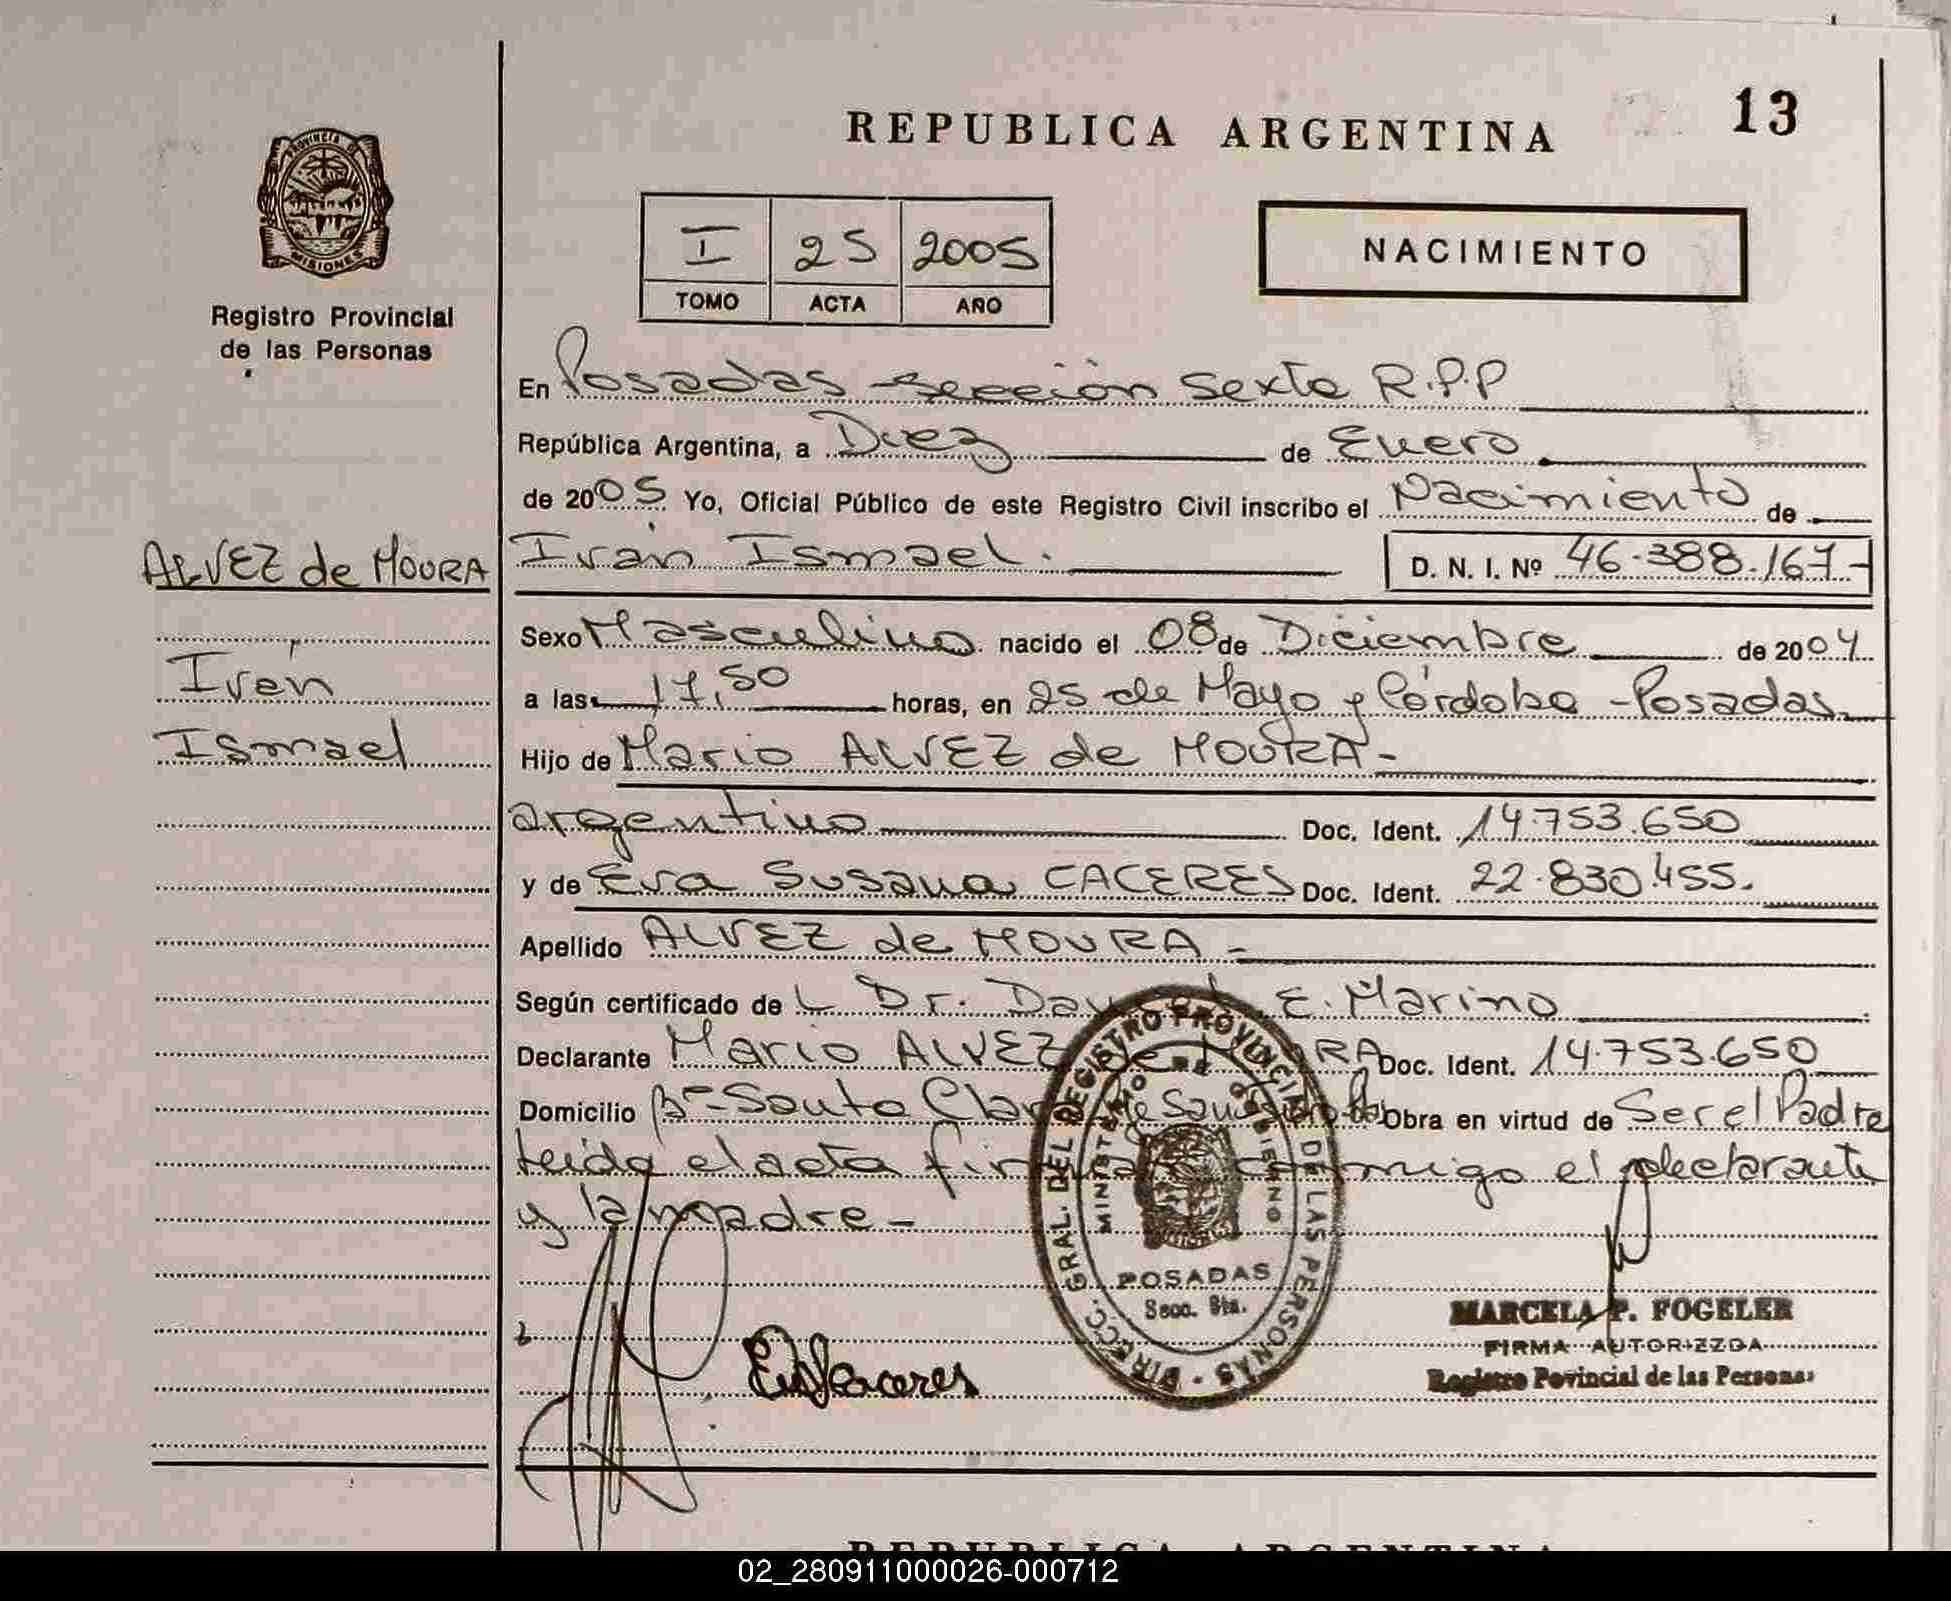 REPUBLICA ARGENTINA
13
PROVINCIA DE
MISIONES
Registro Provincial
de las Personas
I 25 2005
TOMO ACTA AÑO
NACIMIENTO
En Posadas Sección Sexta R.P.P
República Argentina, a Diez de Enero
de 2005 Yo, Oficial Público de este Registro Civil inscribo el Nacimiento de
ALVEZ de MOURA
Iván Ismael. D. N. I. Nº 46.388.167-
Sexo Masculino nacido el 08 de Diciembre de 2004
Iván
a las 17,50 horas, en 25 de Mayo y Córdoba - Posadas
Ismael
Hijo de Mario ALVEZ de MOURA -
argentino Doc. Ident. 14.753.650
y de Eva Susana CACERES Doc. Ident. 22.830.455.
Apellido ALVEZ de MOURA -
Según certificado de L Dr. E. Marino
Declarante Mario ALVEZ de MOURA Doc. Ident. 14.753.650
Domicilio Bº Santa Obra en virtud de Ser el Padre
Leída el acta firman conmigo el declarante
y la madre -
DIRECC. GRAL. DEL REGISTRO PROVINCIAL DE LAS PERSONAS
MINISTERIO DE GOBIERNO
POSADAS
Secc. 6ta.
MARCELA P. FOGELER
FIRMA AUTORIZZDA
Registro Povincial de las Personas
REPUBLICA ARGENTINA
02_280911000026-000712